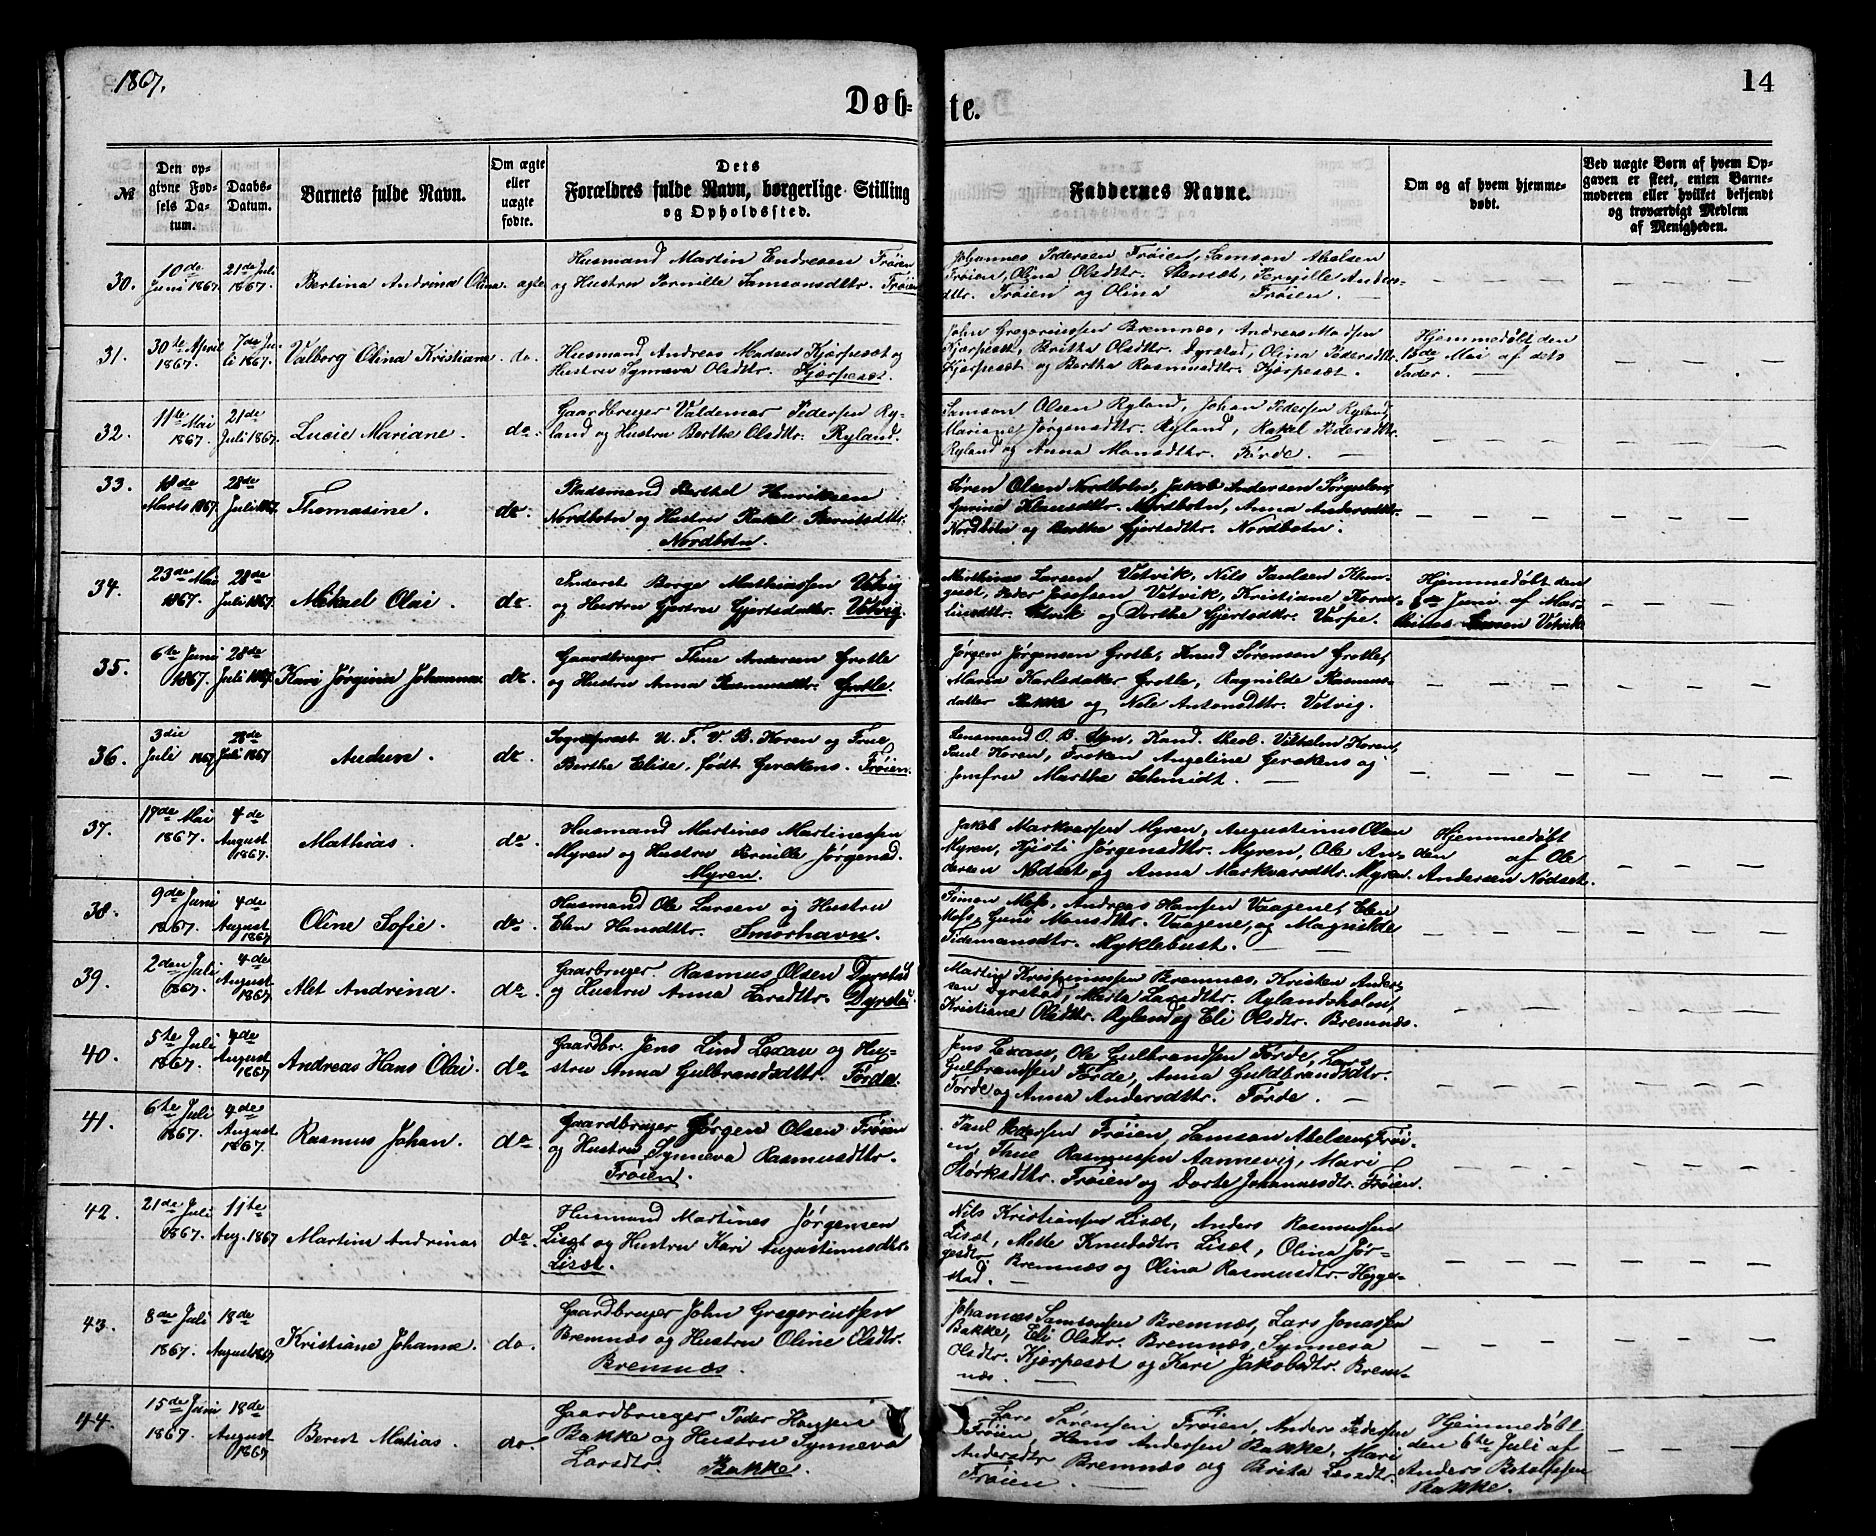 1867.
14
Døb=te.
№
Den opgivne Fødsels Datum.
Daabs-Datum.
Barnets fulde Navn.
Om ægte eller uægte fødte.
Dets Forældres fulde Navn, borgerlige Stilling og Opholdssted.
Faddernes Navne.
Om og af hvem hjemmedøbt.
Ved uægte Børn af hvem Opgaven er skeet, enten Barnemoderen eller hvilket bekjendt og troværdigt Medlem af Menigheden.
30.
10de Juni 1867.
21de Juli 1867.
Bertina Andrina Olina.
ægte
Husmand Martin Endresen Frøien
og Hustru Pernille Samsonsdttr. Frøien
Johannes Pedersen Frøien, Samson Abelsen
Frøien, Olina Olsdttr. Stensæt, Pernille Anders-
dttr. Frøien og Olina Frøien. —
31.
30te April 1867.
7de Juli 1867.
Valborg Olina Kristiane
do.
Husmand Andreas Madsen Kjærpesæt og
Hustru Synneva Olsdttr. Kjærpesæt.
John Gregoriussen Bremnæs, Andreas Madsen
Kjærpesæt, Britha Olsdttr. Dyrstad, Olina Pedersdttr.
Kjærpesæt og Bertha Rasmusdttr. Kjærpesæt.
Hjemmedøbt den
13de Mai af dets
Fader. —
32.
11te Mai 1867.
21de Juli 1867.
Lucie Mariane.
do.
Gaardbruger Valdemar Pedersen Ry-
land og Hustru Berthe Olsdttr. Ryland.
Samson Olsen Ryland, Johan Pedersen Ryland,
Mariane Jørgensdttr. Ryland, Rakel Pedersdttr.
Ryland og Anna Monsdttr. Førde. —
33.
18de Marts 1867.
28de Juli 1867.
Thomasine.
do.
Pladsmand Berthel Henriksen
Nordbotn og Hustru Rakel Berntsdttr.
Nordbotn.
Søren Olsen Nordbotn, Jakob Andersen
Klausdttr. Nordbotn, Anna Andersdttr.
Nordbotn og Berthe Gjertsdttr. Nordbotn.
34.
23de Mai 1867.
28de Juli 1867.
Mikael Olai.
do.
Inderst Børge Mathiassen Vetvig
og Hustru Gjertru Gjertsdatter. Vetvig
Marthinus Larsen Vetvik, Nils Paulsen
Peder Josefsen Vetvik, Kristiane Korne-
liusdttr. Vetvik og Dorthe Gjertsdttr. Varpe.
Hjemmedøbt den
8de Juni af Mar-
thinus Larsen Vetvik
35.
6te Juni 1867.
28de Juli 1867.
Kari Jørgina Johanna
do.
Gaardbruger Thue Andersen Grotle
og Hustru Anna Rasmusdttr. Grotle.
Jørgen Jørgensen Grotle, Knud Sørensen Grotle,
Maria Karlsdatter Grotle, Ragnilde Rasmus-
datter Bakke og Nele Antonsdttr. Vetvig.
36.
3die Juli 1867
28de Juli 1867
Audun.
do.
Sogneprest U. F. V. B. Koren og Frue
Berthe Elise, født Gerckens. Frøien.
Lensmand O. B. Kand. theol. Vilhelm Koren,
Paul Koren, Frøken Angeline Gerckens og
Jomfru Marthe Schmidt. —
37.
17de Mai 1867.
4de August 1867.
Mathias.
do.
Husmand Martines Martinessen
Myren og Hustru Pernille Jørgensd.
Myren.
Jakob Markvarssen Myren, Augustinus Olsen
Myren, Kjisti Jørgensdttr. Myren, Ole An-
dersen Nødset og Anna Markvarsdttr. Myren.
Hjemmedøbt
den af Ole
Andersen Nødset.
38.
9de Juni 1867.
4de August 1867
Oline Sofie.
do.
Husmand Ole Larsen og Hustru
Elen Hansdttr. Smørhavn.
Simon Moss, Andreas Hansen Vaagene, Elen
Moss, Guni Monsdttr. Vaagene, og Magnilde
Tidemansdttr. Myklebust. —
39.
2den Juli 1867.
4de August 1867
Alet Andrina.
do.
Gaarbruger. Rasmus Olsen Dyrstad
og Hustru Anna Larsdttr. Dyrstad.
Martin Krispinussen Bremnæs, Kristen Ander-
sen Dyrstad, Marta Larsdttr. Rylandsholm,
Kristiane Olsdttr. Ryland og Eli Olsdttr. Bremnæs.
40.
5te Juli 1867.
4de August 1867
Andreas Hans Olai.
do.
Gaardbr. Jens Lind Lexau og Hu-
stru Anna Gulbrandsdttr. Førde.
Jens Lexau, Ole Gulbrandsen Førde, Lars
Gulbrandsen Førde, Anna Guldbrandsdttr.
Førde og Anna Andersdttr. Førde. —
41.
6te Juli 1867.
4de August 1867.
Rasmus Johan.
do.
Gaardbruger Jørgen Olsen Frøien
og Hustru Synneva Rasmusdttr.
Frøien.
Paul Pedersen Frøien, Samson Abelsen, Frøi-
en, Thue Rasmussen Aannevig, Mari
Størksdttr. Frøien og Dorte Johannesdtr. Frøien.
42.
21de Juli 1867.
11te Aug. 1867
Martin Andrinas
do.
Husmand Martines Jørgensen
Lisæt og Hustru Kari Augustinusdttr.
Lisæt.
Nils Kristiansen Lisæt, Anders Rasmussen
Lisæt, Mette Knudsdtr. Lisæt, Olina Jør-
gesdtr. Bremnæs og Olina Rasmusdttr. Hegge-
stad. —
43.
8de Juli 1867.
18de August 1867
Kristiane Johanne.
do.
Gaardbruger John Gregoriussen
Bremnæs og Hustru Oline Olsdtr.
Bremnæs.
Johannes Samsonsen Bremnæs, Lars Jonassen
Bakke, Eli Olsdtr. Bremnæs, Synneva
Olsdtr. Kjærpesæt og Kari Jakobsdtr. Brem-
næs. —
44.
15de Juni 1867.
18de August 1867
Berent Matias.
do.
Gaardbruger Peder Hansen
Bakke og Hustru Synneva
Larsdtr. Bakke.
Lars Sørensen Frøien, Anders Pedersen
Frøien, Hans Andersen Bakke, Mari
Andersdtr. Bremnæs og Brita Larsdtr.
Frøien. —
Hjemmedøbt
den 6te Juli af
Anders Botolfsen
Bakke.